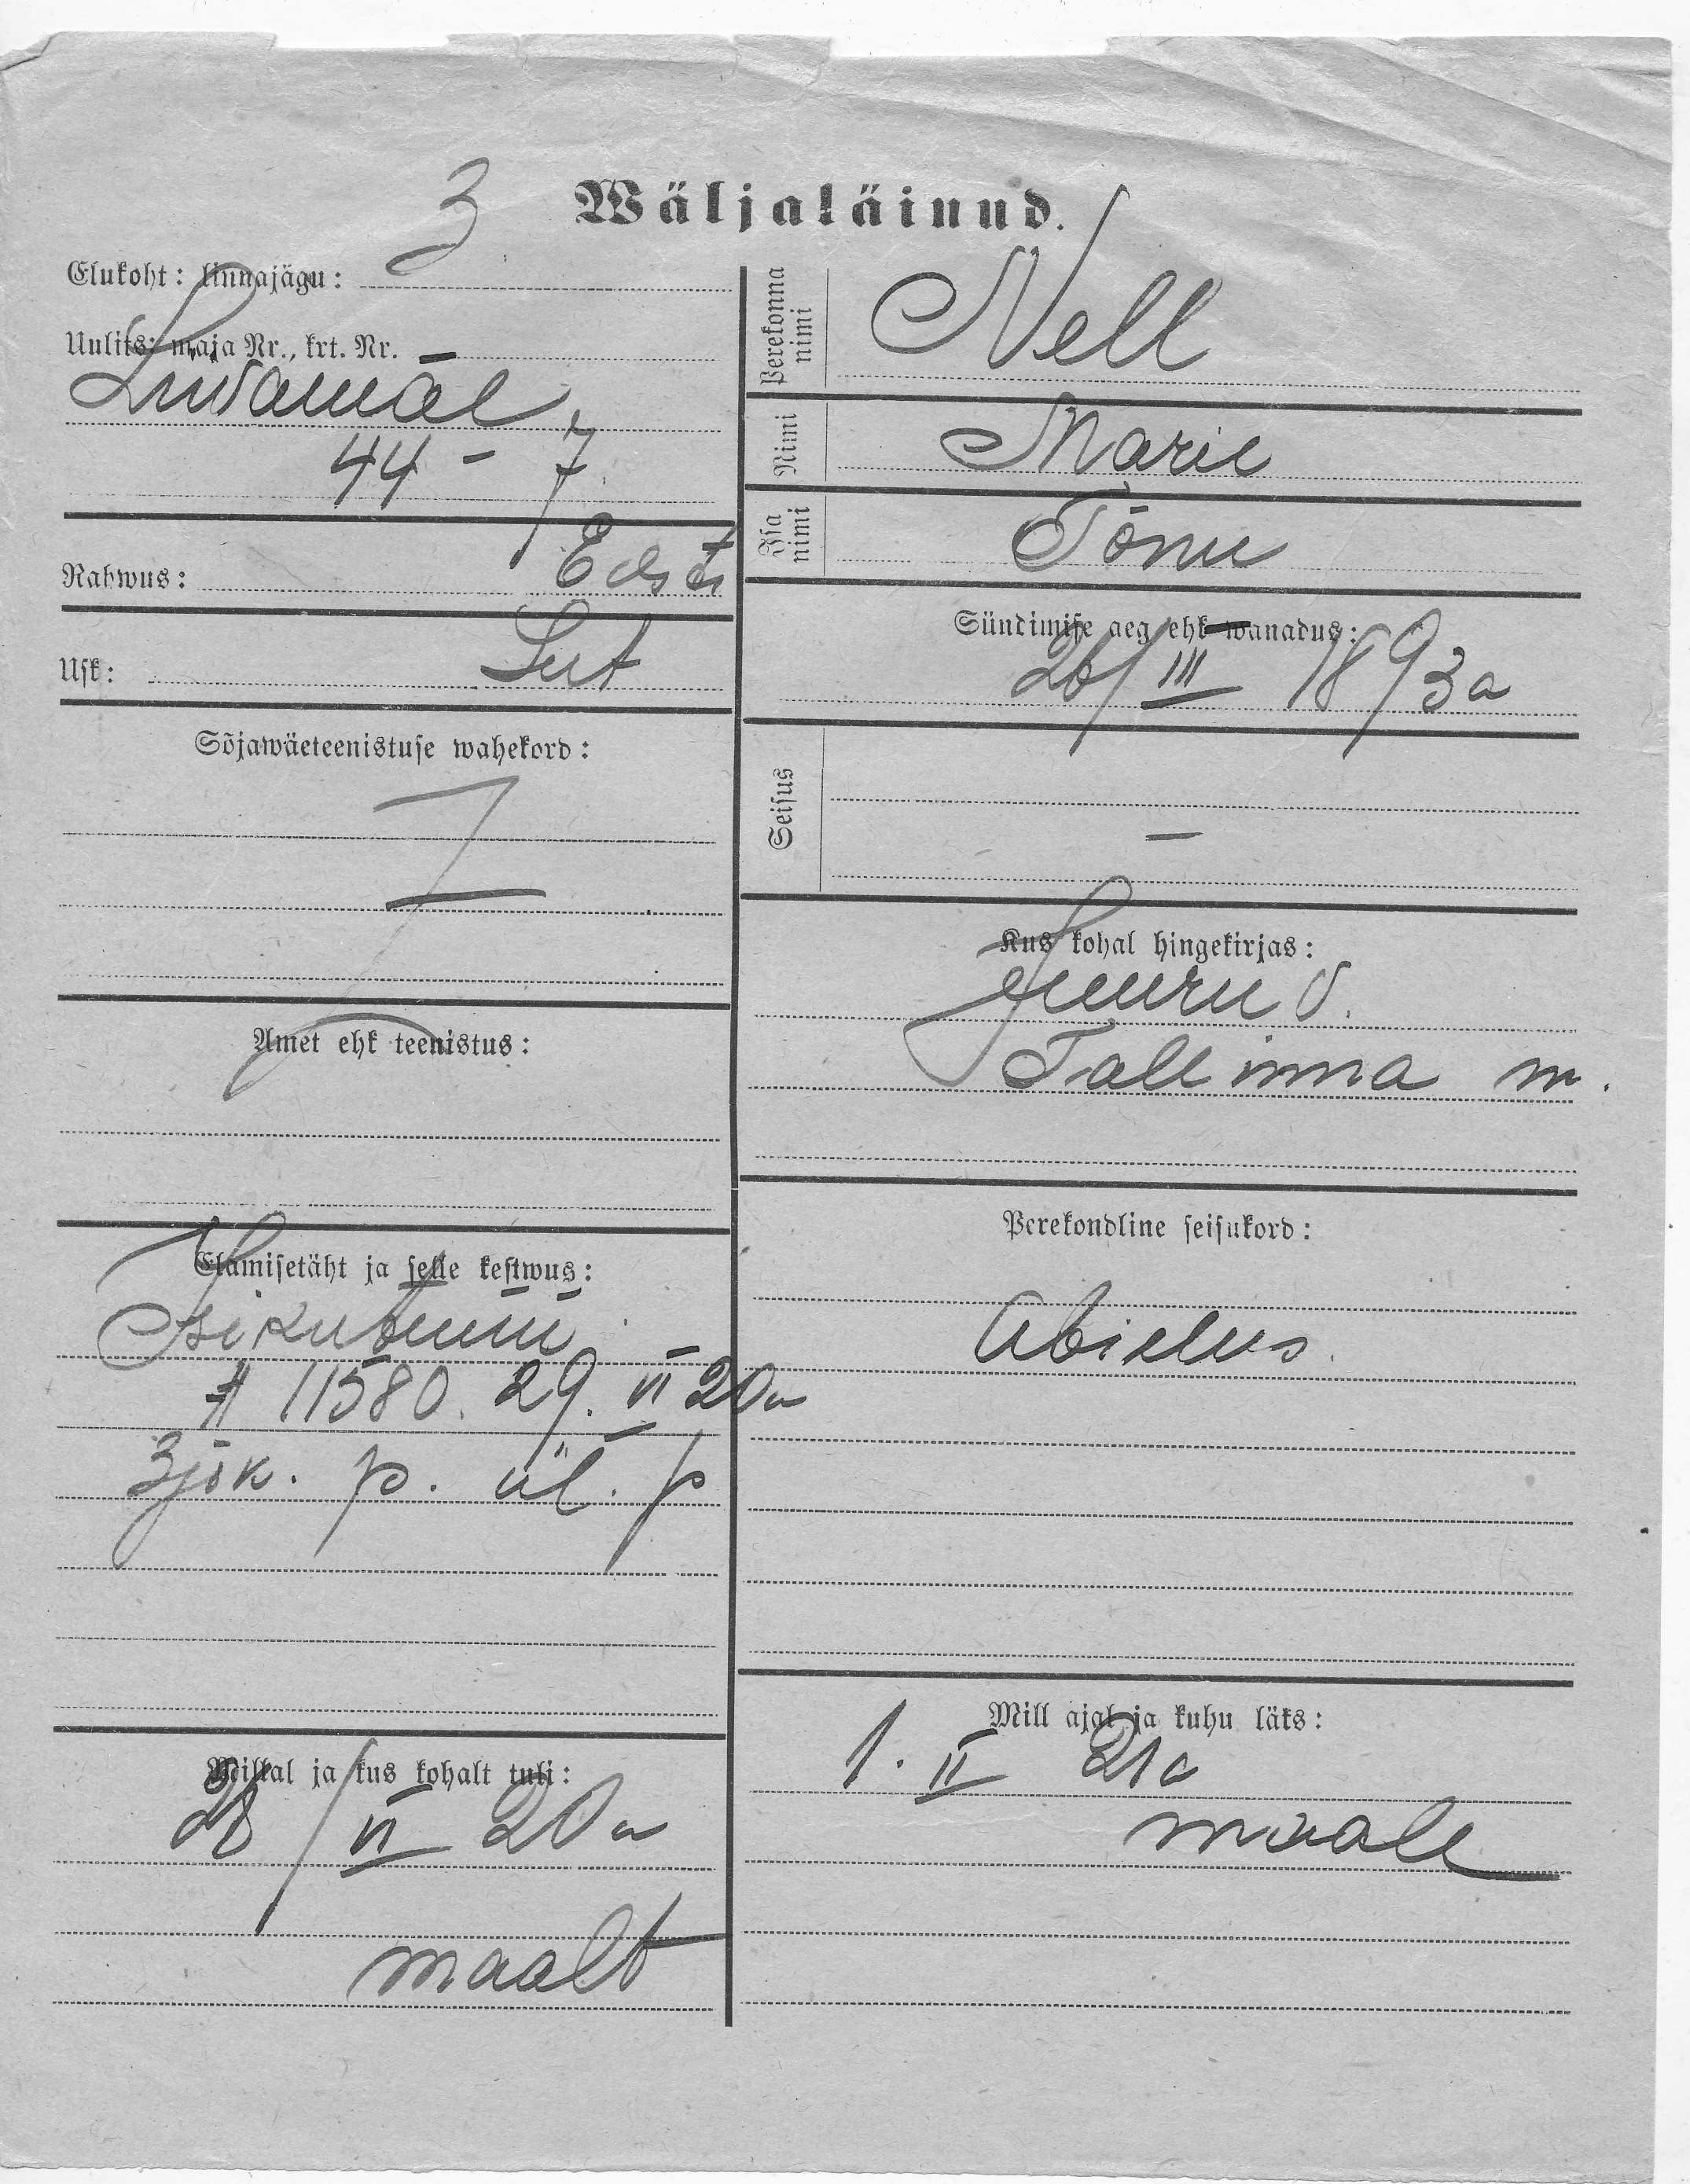 Wäljaläinud.
Elukoht: linnajägu: 3
Uulits: maja Nr., krt. Nr.
44 - 7
Rahwus: Eesti
Usk: Lut
Sõjawäeteenistuse wahekord:
—
Amet ehk teenistus:
Elamisetäht ja selle kestwus:
Isikutunn
# 11580. 29. VI 20a
3 jsk. p. ül. p
Millal ja kus kohalt tuli:
28/VI 20a
maalt
Perekonna nimi Nell
Nimi Marie
Isa nimi Tõnu
Sündimise aeg ehk wanadus:
26/III 1893a
Seisus
—
Kus kohal hingekirjas:
Juuru v.
Tallinna m.
Perekondline seisukord:
Abielus.
Mill ajal ja kuhu läks:
1. II 21a
maale